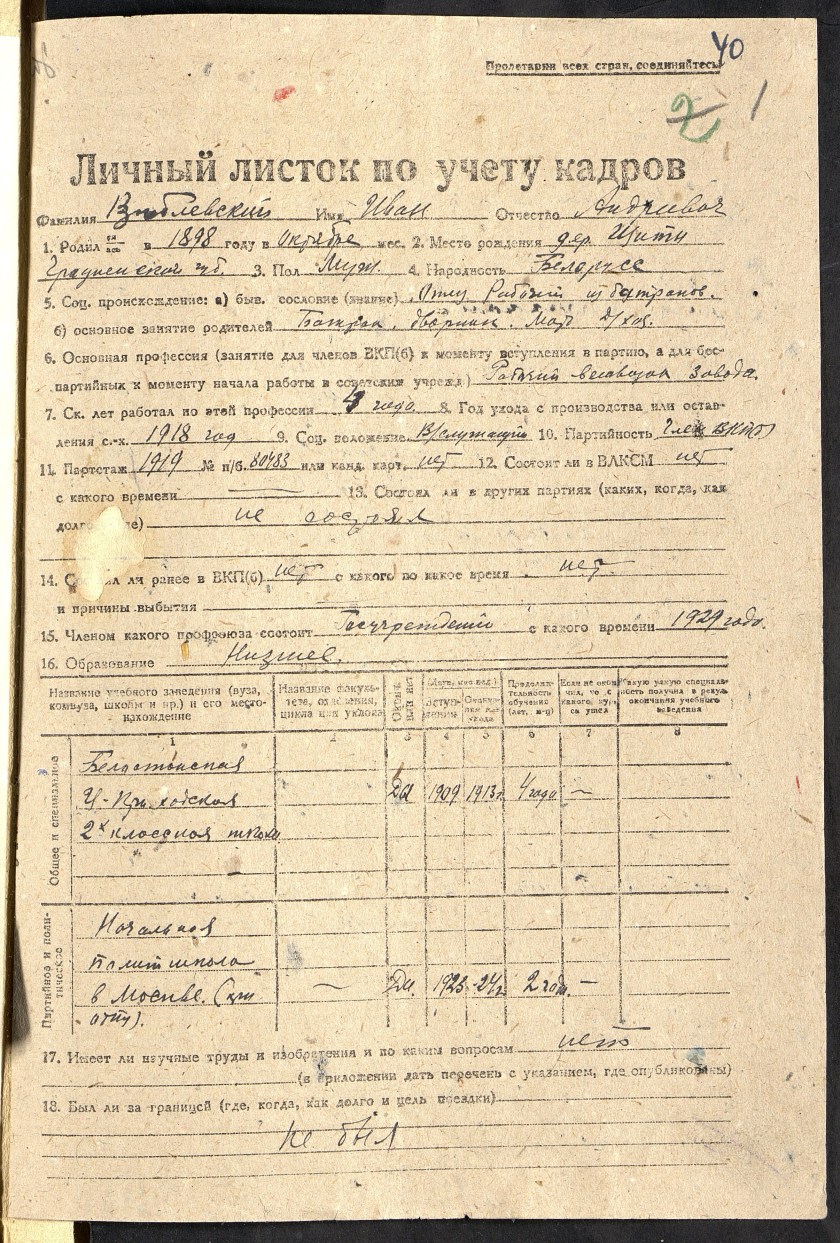 40
Пролетарии всех стран, соединяйтесь
2 1
Личный листок по учету кадров
Фамилия Имя Иван Отчество Андреевич
1. Родил ся ась в 1898 году в октябре мес. 2. Место рождения дер. Щиты
Гродненской губ. 3. Пол Муж. 4. Народность Белорусс
5. Соц. происхождение: а) быв. сословие (звание) Рабочий из батраков.
б) основное занятие родителей Батрак, дворник. Мать д/хоз.
6. Основная профессия (занятие для членов ВКП(б) к моменту вступления в партию, а для бес-
партийных к моменту начала работы в советских учрежд) Рабочий завода.
7. Ск. лет работал по этой профессии 4 года 8. Год ухода с производства или остав-
ления с.-х. 1918 год 9. Соц. положение В/служащий 10. Партийность Член ВКП(б)
11. Партстаж 1919 № п/б. 80483 или канд. карт. нет 12. Состоит ли в ВЛКСМ нет
с какого времени 13. Состоял ли в других партиях (каких, когда, как
долго не состоял
14. ли ранее в ВКП(б) нет с какого по какое время нет
и причины выбытия
15. Членом какого профсоюза состоит Госучреждений с какого времени 1929 года.
16. Образование Низшее.
Название учебного заведения (вуза, комвуза, школы и пр.) и его место-нахождение
Название факуль-тета, отделения, цикла или уклона
Окончил или нет
Продолжи-тельность обучения (лет, м-ц)
Если не окон-чил, то с какого курса ушел
Какую узкую специаль-ность получил в резул. окончания учебного заведения
1 2 3 4 5 6 7 8
Общее и специальное
Белостокская
Ц-Приходская Да 1909 1913г 4 года —
2х классная школа
Партийное и поли-тическое
Начальная
Политшкола
в Москве. — Да. 1923 -24г 2 года. —
17. Имеет ли научные труды и изобретения и по каким вопросам нет
(в приложении дать перечень с указанием, где опубликованы)
18. Был ли за границей (где, когда, как долго и цель поездки)
не был